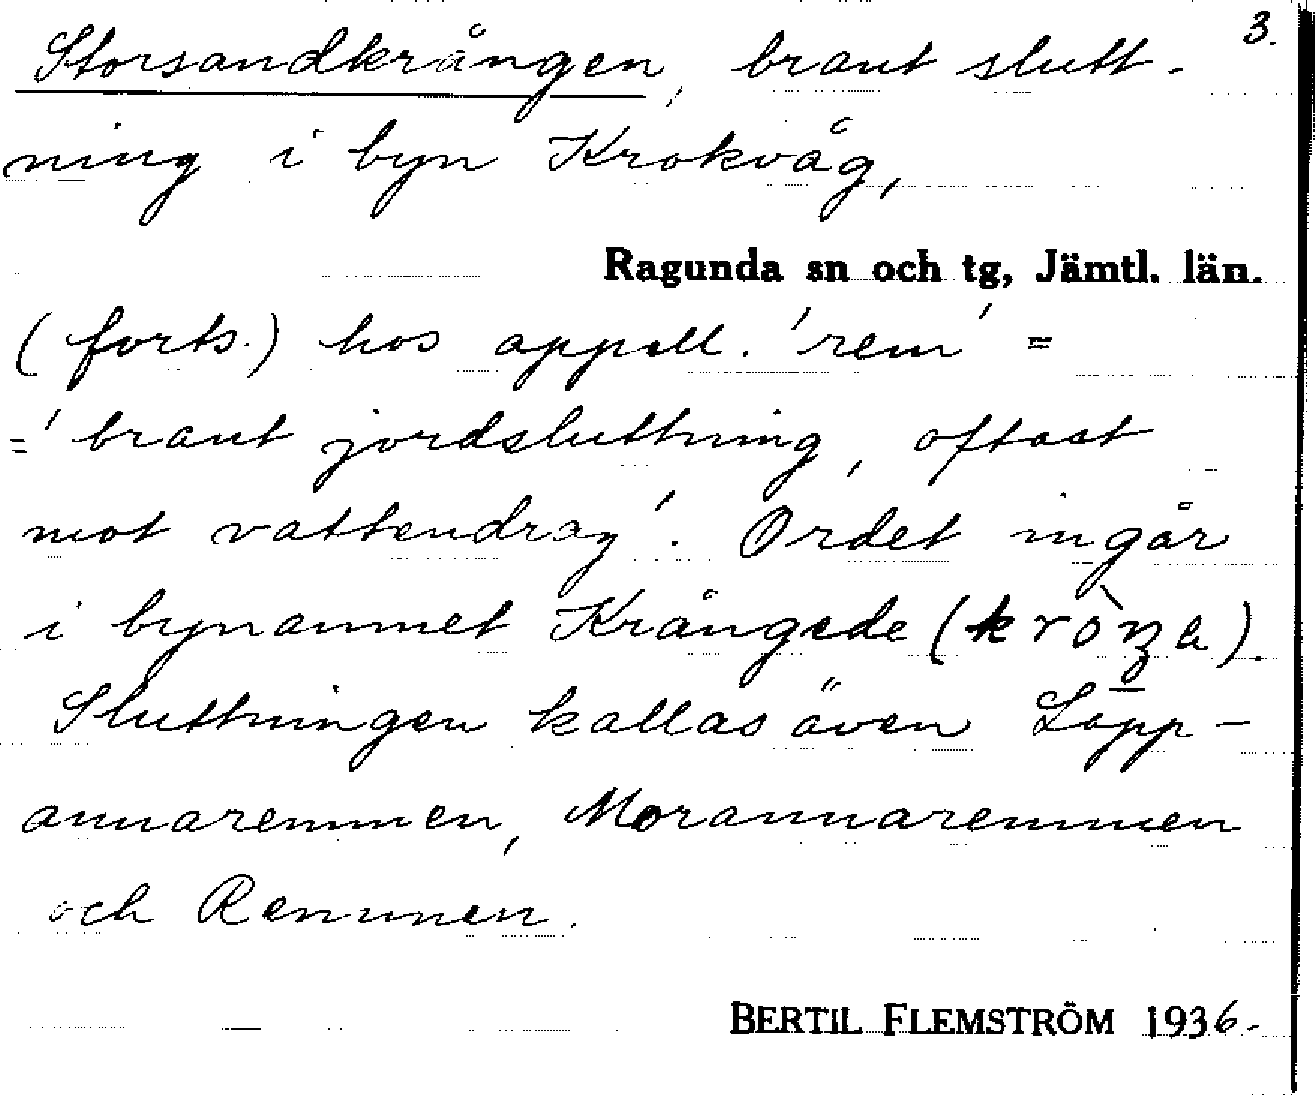 3.
Storsandkrången, brant slutt-
ning i byn Krokvåg,
Ragunda sn och tg, Jämtl. län.
(forts.) hos appell. 'rem' =
= 'brant jordsluttning, oftast
mot vattendrag'. Ordet ingår
i bynamnet Krångede
Sluttningen kallas även Lapp-
annaremmen, Morannaremmen
och Remmen.
BERTIL FLEMSTRÖM 1936.